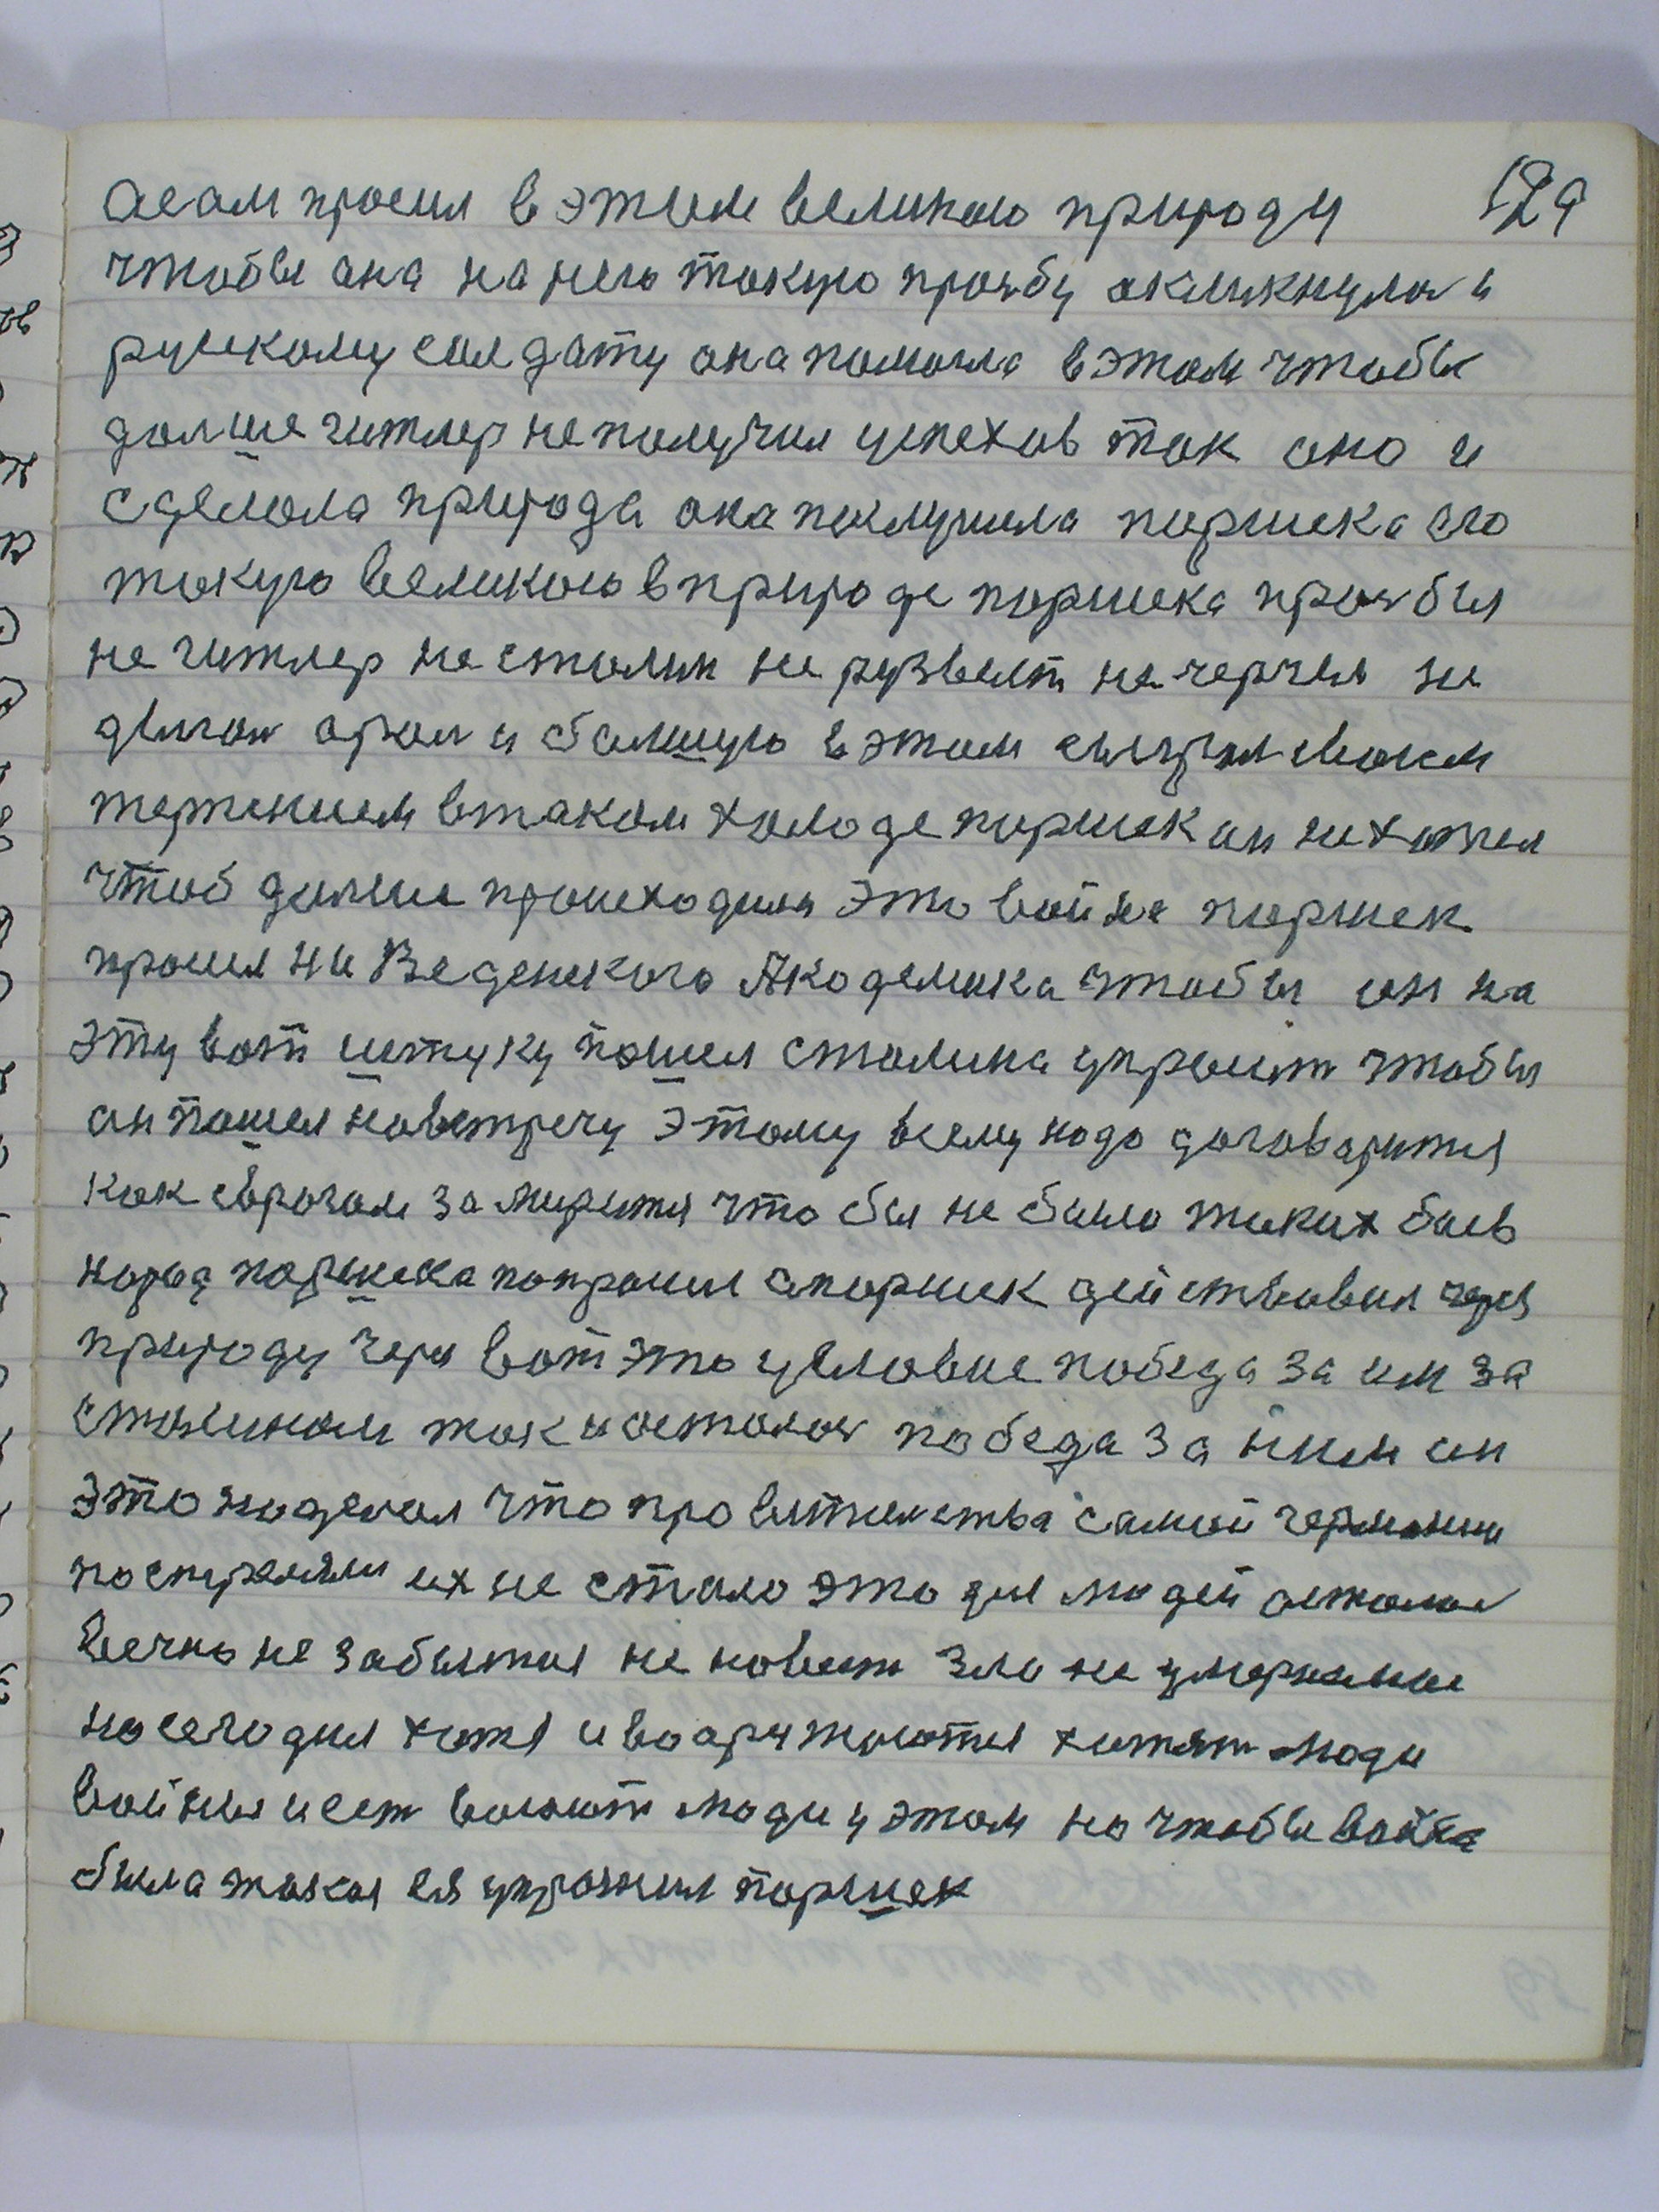 асам просил в этим великою природу 129
чтобы она на него такую прозьбу окликнулась и
рускому солдату она помогла в этом чтобы
далше гитлер не получил успехов так оно и
сделола природа она послушила паршека его
такую великою в природе паршека прозьбы
не гитлер не столин не рузвелт не черчел не
деголь орол и балшую в этом сыграл своем
терпением в таком холоде паршек он не хотел
чтоб далше происходила это война паршек
просил ни Веденского Академика чтобы он на
эту вот штуку пошел столина упросит чтобы
он пошел навстречу этому всему надо договорится
как с врогом замирится что бы не было таких боев
народ паршека попросил а паршек действовал через
природу через вот это условие победа за им за
столином так и осталось победа за ним он
это наделал что провителства самой германии
поспрямли их не стало это для людей осталось
вечно не забытая не новист зло не умераемое
но сегодня хотя и вооружаются хотят люди
войны и ест воюют люди у этом но чтобы война
была такая ея упросил паршек